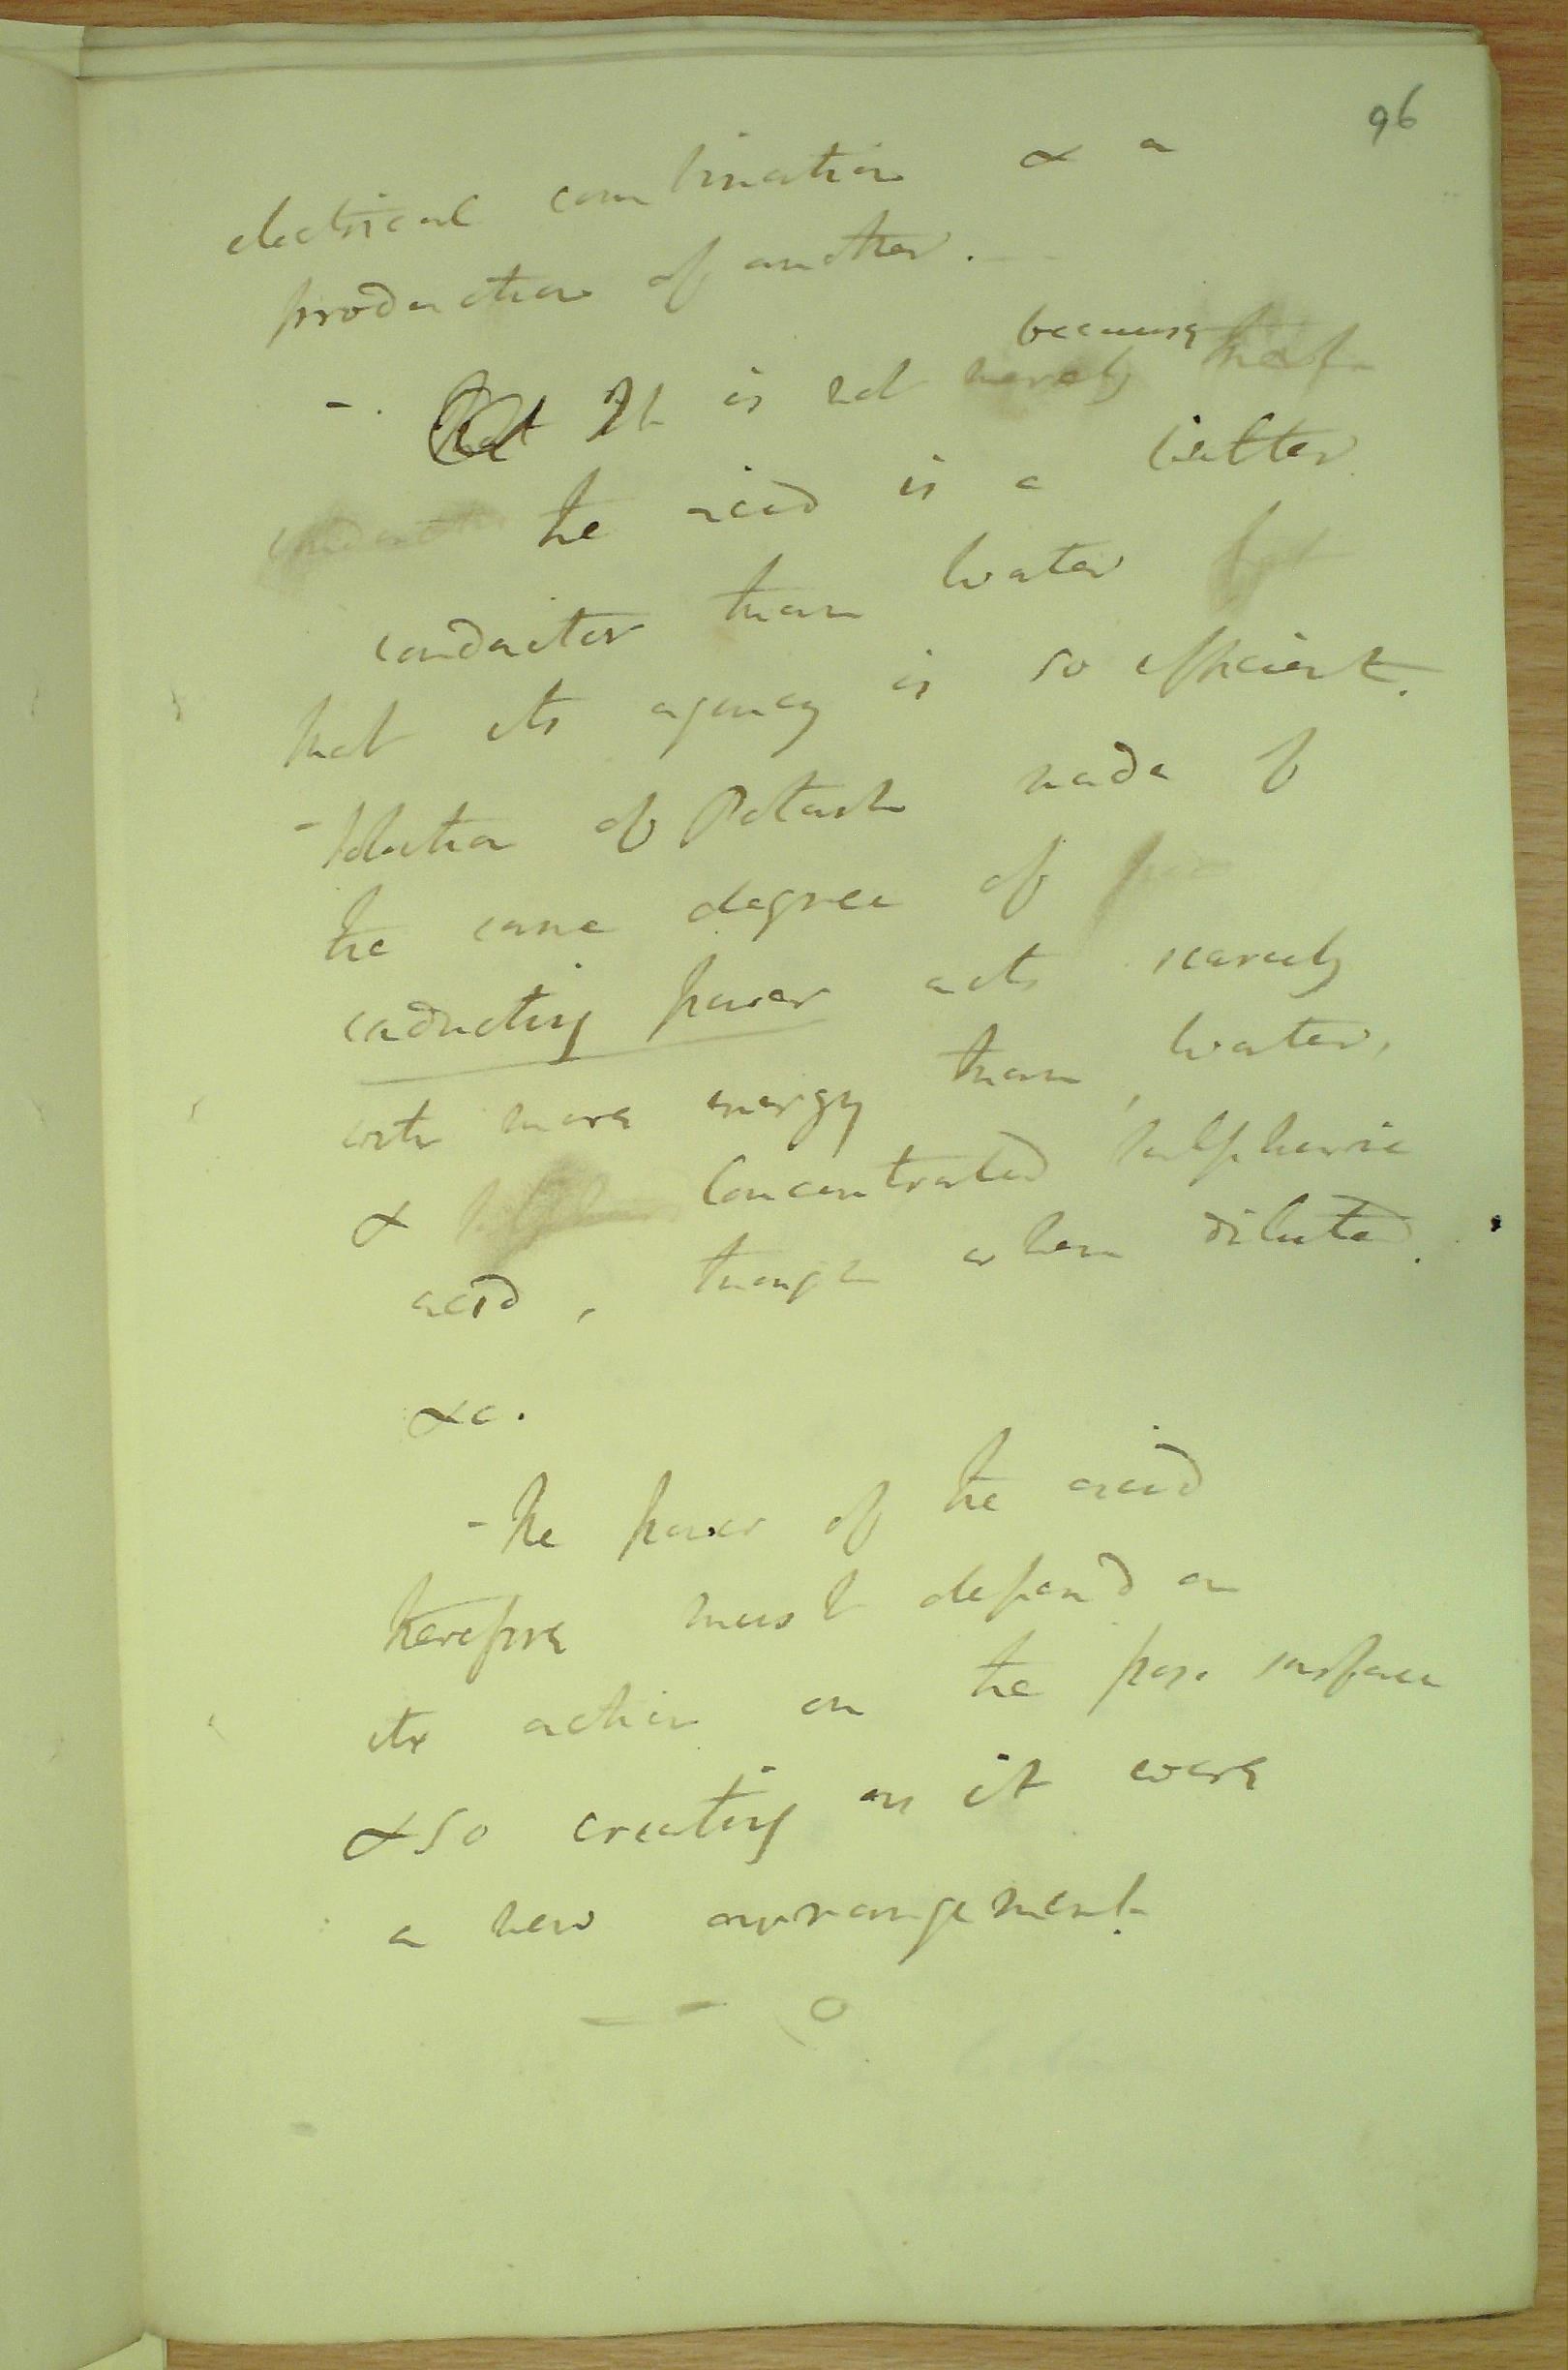 96
electrical combination & a
production of another. —
because
- . It is not merely that
the acid is a better
conductor than water
that its agency is so efficient.
- Solution of Potash made of
the same degree of
conducting power acts scarcely
with more energy than water,
& Concentrated sulphuric
acid, though when diluted.
&c.
- The power of the acid
therefore must depend on
its action on the surface
& so creating as it were
a new arrangement.